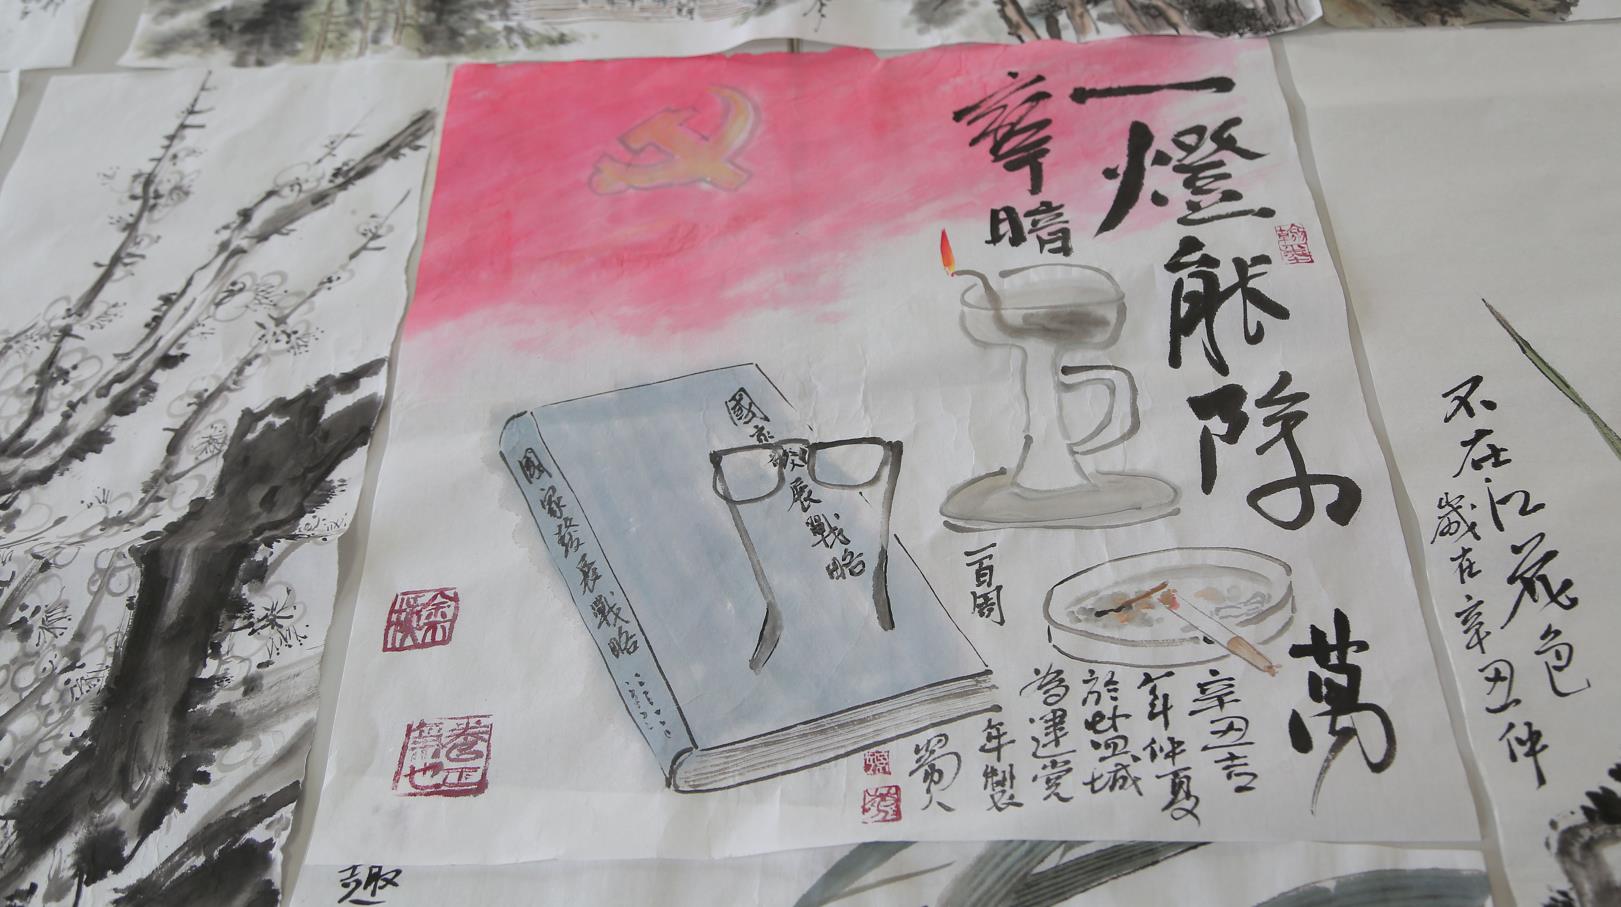 一燈能除萬
年暗
國家發展戰略
國家發展戰略
辛丑吉
年仲夏
於城
為建党
一百周
年製
蜀人
不在江花色
歲在辛丑仲
趣